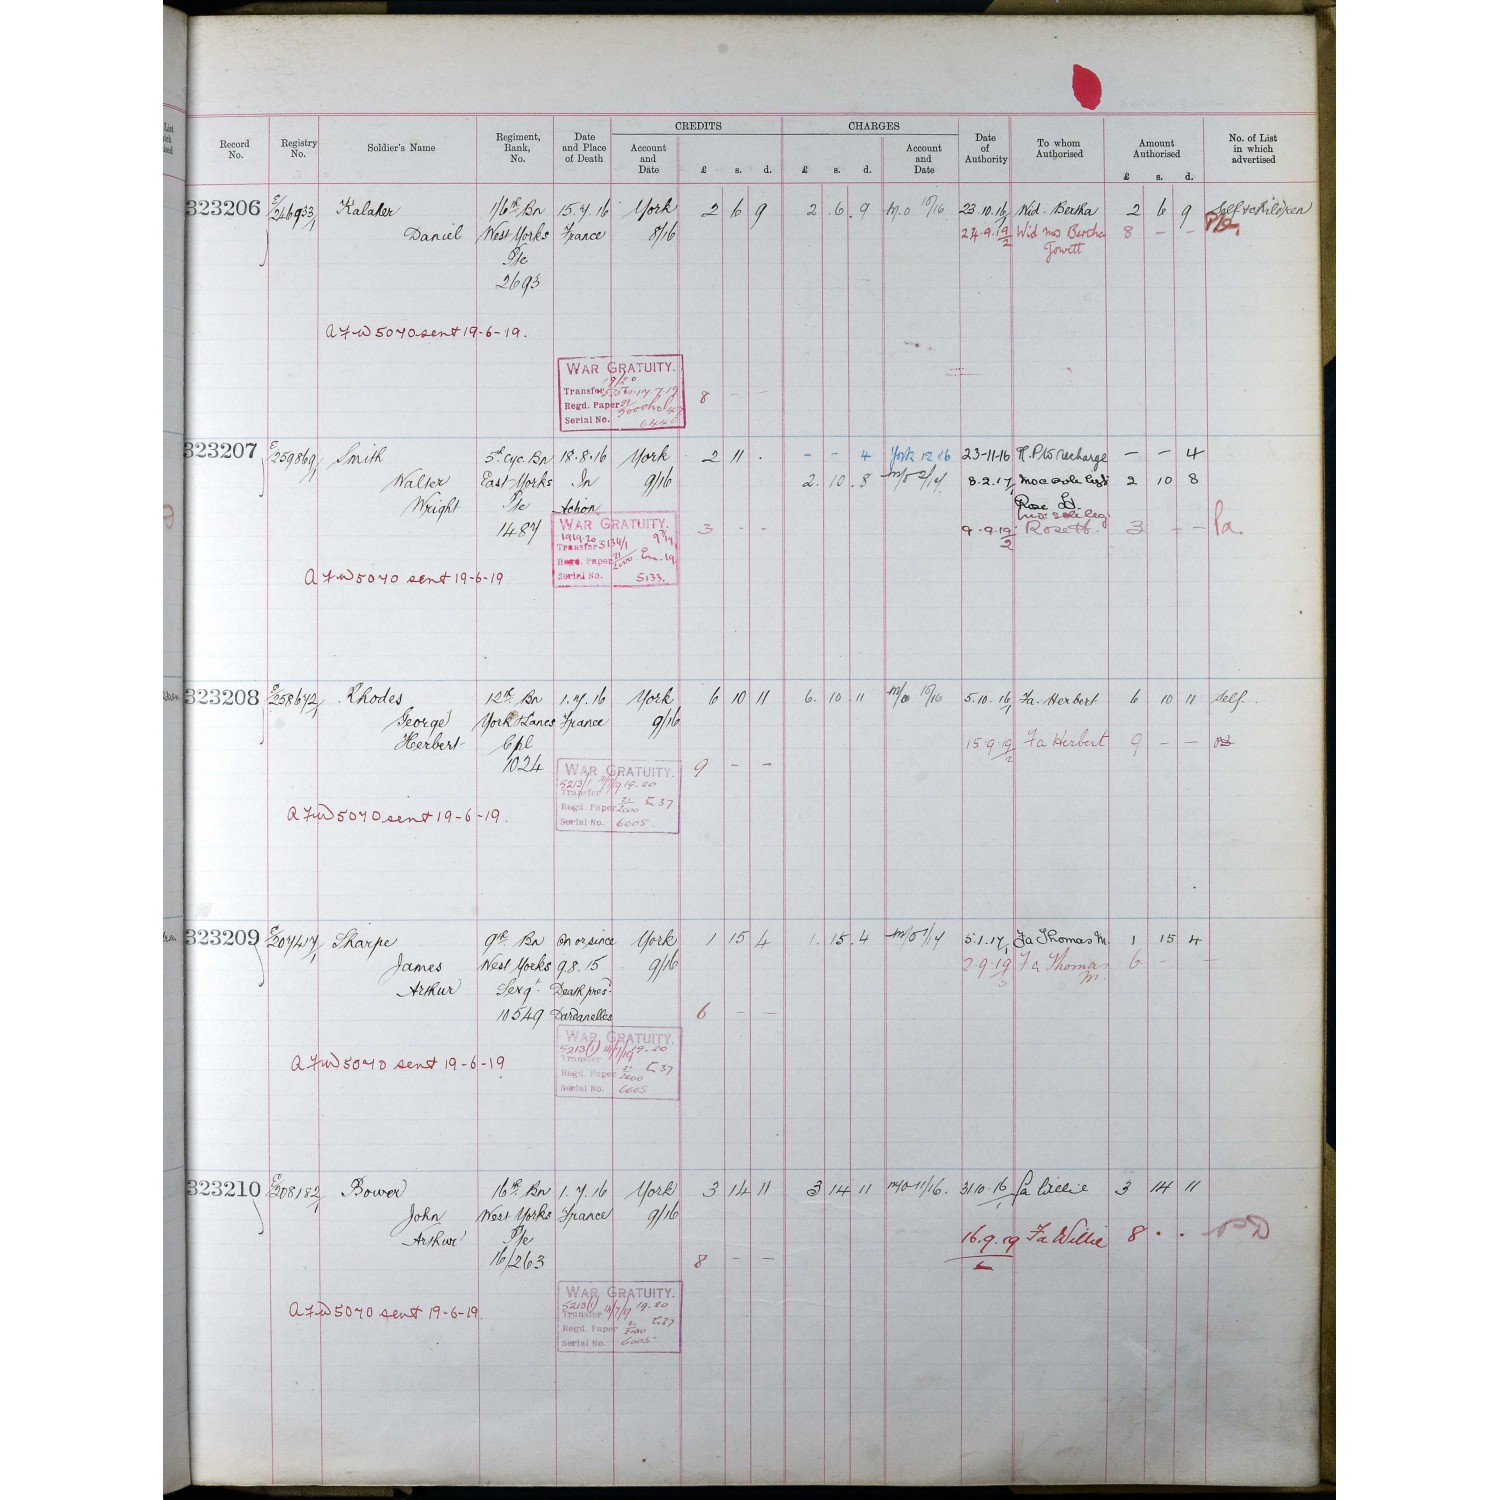 CREDITS CHARGES
Record No. Registry No. Soldier's Name Regiment, Rank, No. Date and Place of Death Account and Date £ s. d. £ s. d. Account and Date Date of Authority To whom Authorised Amount Authorised £ s. d. No. of List in which advertised
323206 E/246933/1 Kalaher 1/6th Bn 15.7.16 York 2 6 9 2 . 6 . 9 M.O 10/16 23.10.16/1 Wid. Bertha 2 6 9 Self & Children
Daniel West Yorks France 8/16 24.9.19/2 Wid Mrs Bertha 8 – –
Pte Jowett
2693
A F W 5070 sent 19-6-19.
WAR GRATUITY.
19/20
Transfer
Regd. Paper 8 – –
Serial No.
323207 E/259869/1 Smith 5th Cyc. Bn 18.8.16 York 2 11 . – – 4 York 12 16 23-11-16 R.P. to recharge – – 4
Walter East Yorks In 9/16 2. 10 . 8 M/O 2/17 8.2.17/1 2 10 8
Wright Pte Action Rose
1487 WAR GRATUITY. 3 – – 9.9.19/2 Rose 3 – –
1919-20
Transfer 5134/1
Regd. Paper 21/2000
A F W 5070 sent 19-6-19 Serial No. 5133.
323208 E/258672/1 Rhodes 12th Bn 1.7.16 York 6 10 11 6. 10 11 M/O 10/16 5.10.16/1 Fa. Herbert 6 10 11 Self.
George York & Lancs France 9/16
Herbert Cpl 15.9.19/2 Fa Herbert 9 – –
1024 WAR GRATUITY. 9 – –
5213/1 14/7/19 19-20
Transfer
Regd. Paper 21/2000 E 37
A F W 5070 sent 19-6-19. Serial No. 6005.
323209 E/207417/1 Sharpe 9th Bn On or since York 1 15 4 1. 15 . 4 M/O 1/17 5.1.17/1 Fa Thomas M. 1 15 4
James West Yorks 9.8.15 9/16 2.9.19/3 Fa Thomas 6 – –
Arthur Sergt. Death pres. M.
10549 Dardanelles 6 – –
WAR GRATUITY.
5213(1) 14/7/19 19-20
A F W 5070 sent 19-6-19 Transfer
Regd. Paper 21/2000 E 37
Serial No. 6005
323210 E/208182/1 Bower 16th Bn 1.7.16 York 3 14 11 3 14 11 M/O 11/16. 31.10.16/1 Fa Willie 3 14 11
John West Yorks France 9/16
Arthur Pte 16.9.19 Fa Willie 8 . .
16/263 8 – –
WAR GRATUITY.
5213(1) 14/7/19 19-20
A F W 5070 sent 19-6-19. Transfer
Regd. Paper 21/2000 E 37
Serial No. 6005